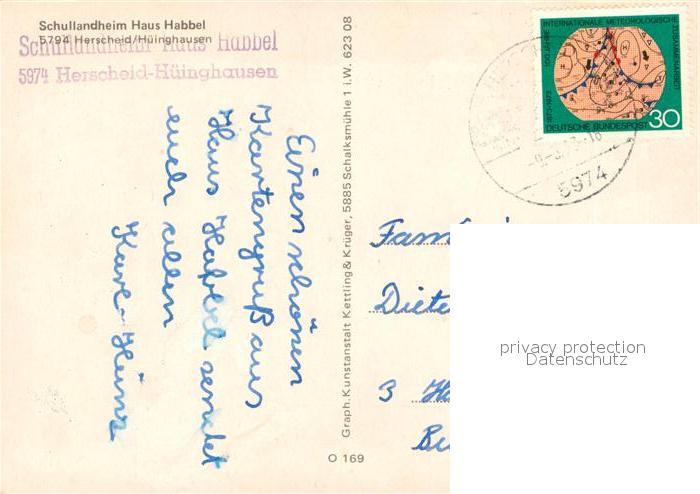 Schullandheim Haus Habbel
5794 Herscheid/Hüinghausen
Schullandheim Haus Habbel
5974 Herscheid-Hüinghausen
Einen schönen
Kartengruß aus
Haus Habbel sendet
euch allen
Karl-Heinz
Graph. Kunstanstalt Kettling & Krüger, 5885 Schalksmühle 1 i.W. 623 08
O 169
100 JAHRE INTERNATIONALE METEOROLOGISCHE ZUSAMMENARBEIT
1873-1973
DEUTSCHE BUNDESPOST 30
5974
Fam
Diete
3 Ha
privacy protection
Datenschutz